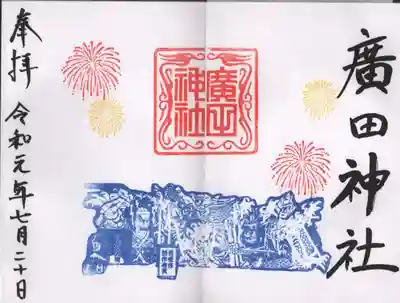 廣田神社
廣田
神社
奉拝 令和元年七月二十日